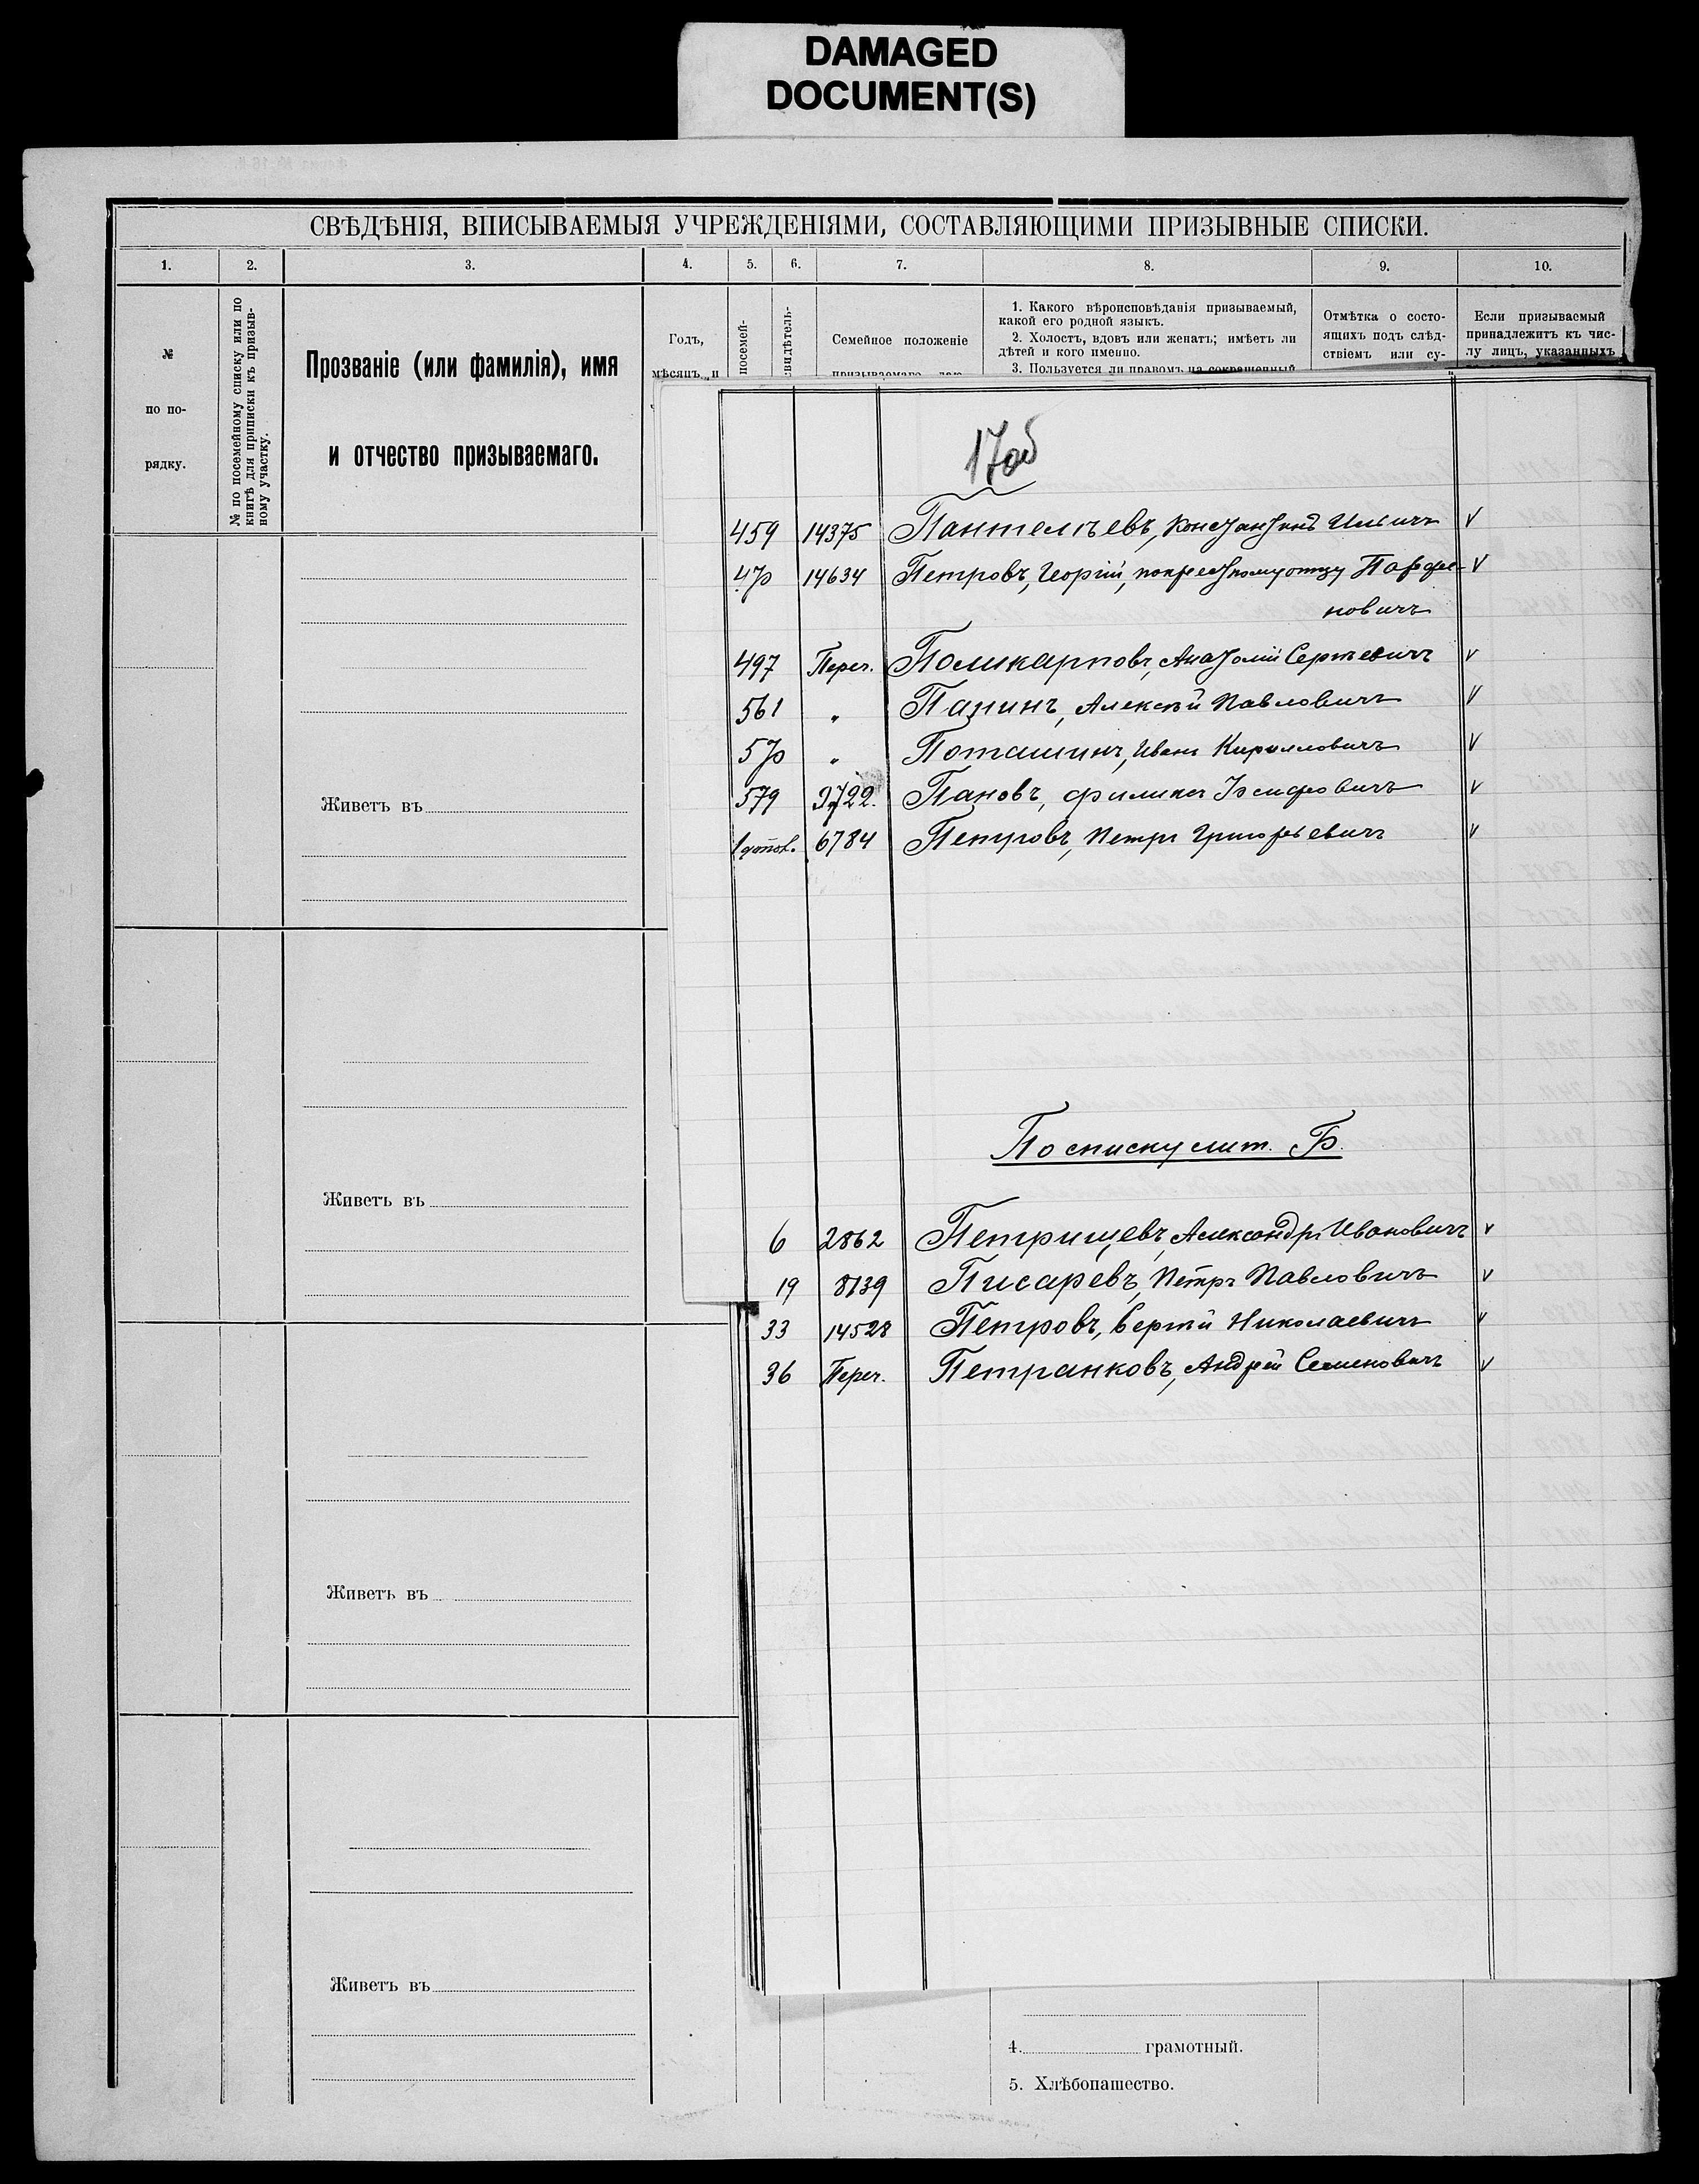 DAMAGED
DOCUMENT(S)
СВѢДѢНІЯ, ВПИСЫВАЕМЫЯ УЧРЕЖДЕНІЯМИ, СОСТАВЛЯЮЩИМИ ПРИЗЫВНЫЕ СПИСКИ.
1. 2. 3. 4. 5. 6. 7. 8. 9. 10.
№
по по-
рядку.
№ по посемейному списку или по
книгѣ для приписки къ призыв-
ному участку.
Прозваніе (или фамилія), имя
и отчество призываемаго.
Годъ,
мѣсяцъ и
посемей-
свидѣтель-
Семейное положеніе
призываемаго
1. Какого вѣроисповѣданія призываемый,
какой его родной языкъ.
2. Холостъ, вдовъ или женатъ; имѣетъ ли
дѣтей и кого именно.
3. Пользуется ли правомъ на сокращенный
Отмѣтка о состо-
ящихъ подъ слѣд-
ствіемъ или су-
Если призываемый
принадлежитъ къ чис-
лу лицъ, указанныхъ
17об
459 14375 Пантелѣевъ, Константинъ Ильичъ V
470 14634 Петровъ, Георгій, по крестному отцу Парфе- V
новичъ
497 Переч. Поликарповъ, Анатолій Сергѣевичъ V
561 " Панинъ, Алексѣй Павловичъ V
570 " Поташинъ, Иванъ Кирилловичъ V
579 3722. Пановъ, Филиппъ Іосифовичъ V
1 допол. 6784 Петровъ, Петръ Григорьевичъ V
По списку лит. Б.
6 2862 Петрищевъ, Александръ Ивановичъ V
19 8139 Писаревъ, Петръ Павловичъ V
33 14528 Петровъ, Сергѣй Николаевичъ V
36 Переч. Петранковъ, Андрей Семеновичъ V
Живетъ въ
Живетъ въ
Живетъ въ
Живетъ въ
4. грамотный.
5. Хлѣбопашество.